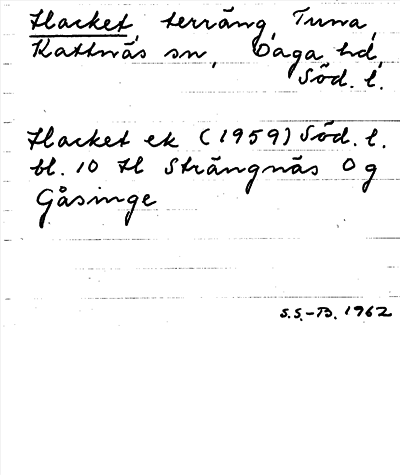 Hacket, terräng, Tuna,
Kattnäs sn, Daga hd,
Söd. l.
Hacket ek (1959) Söd. l.
bl. 10 H Strängnäs Og
Gåsinge
S.S.-B. 1962